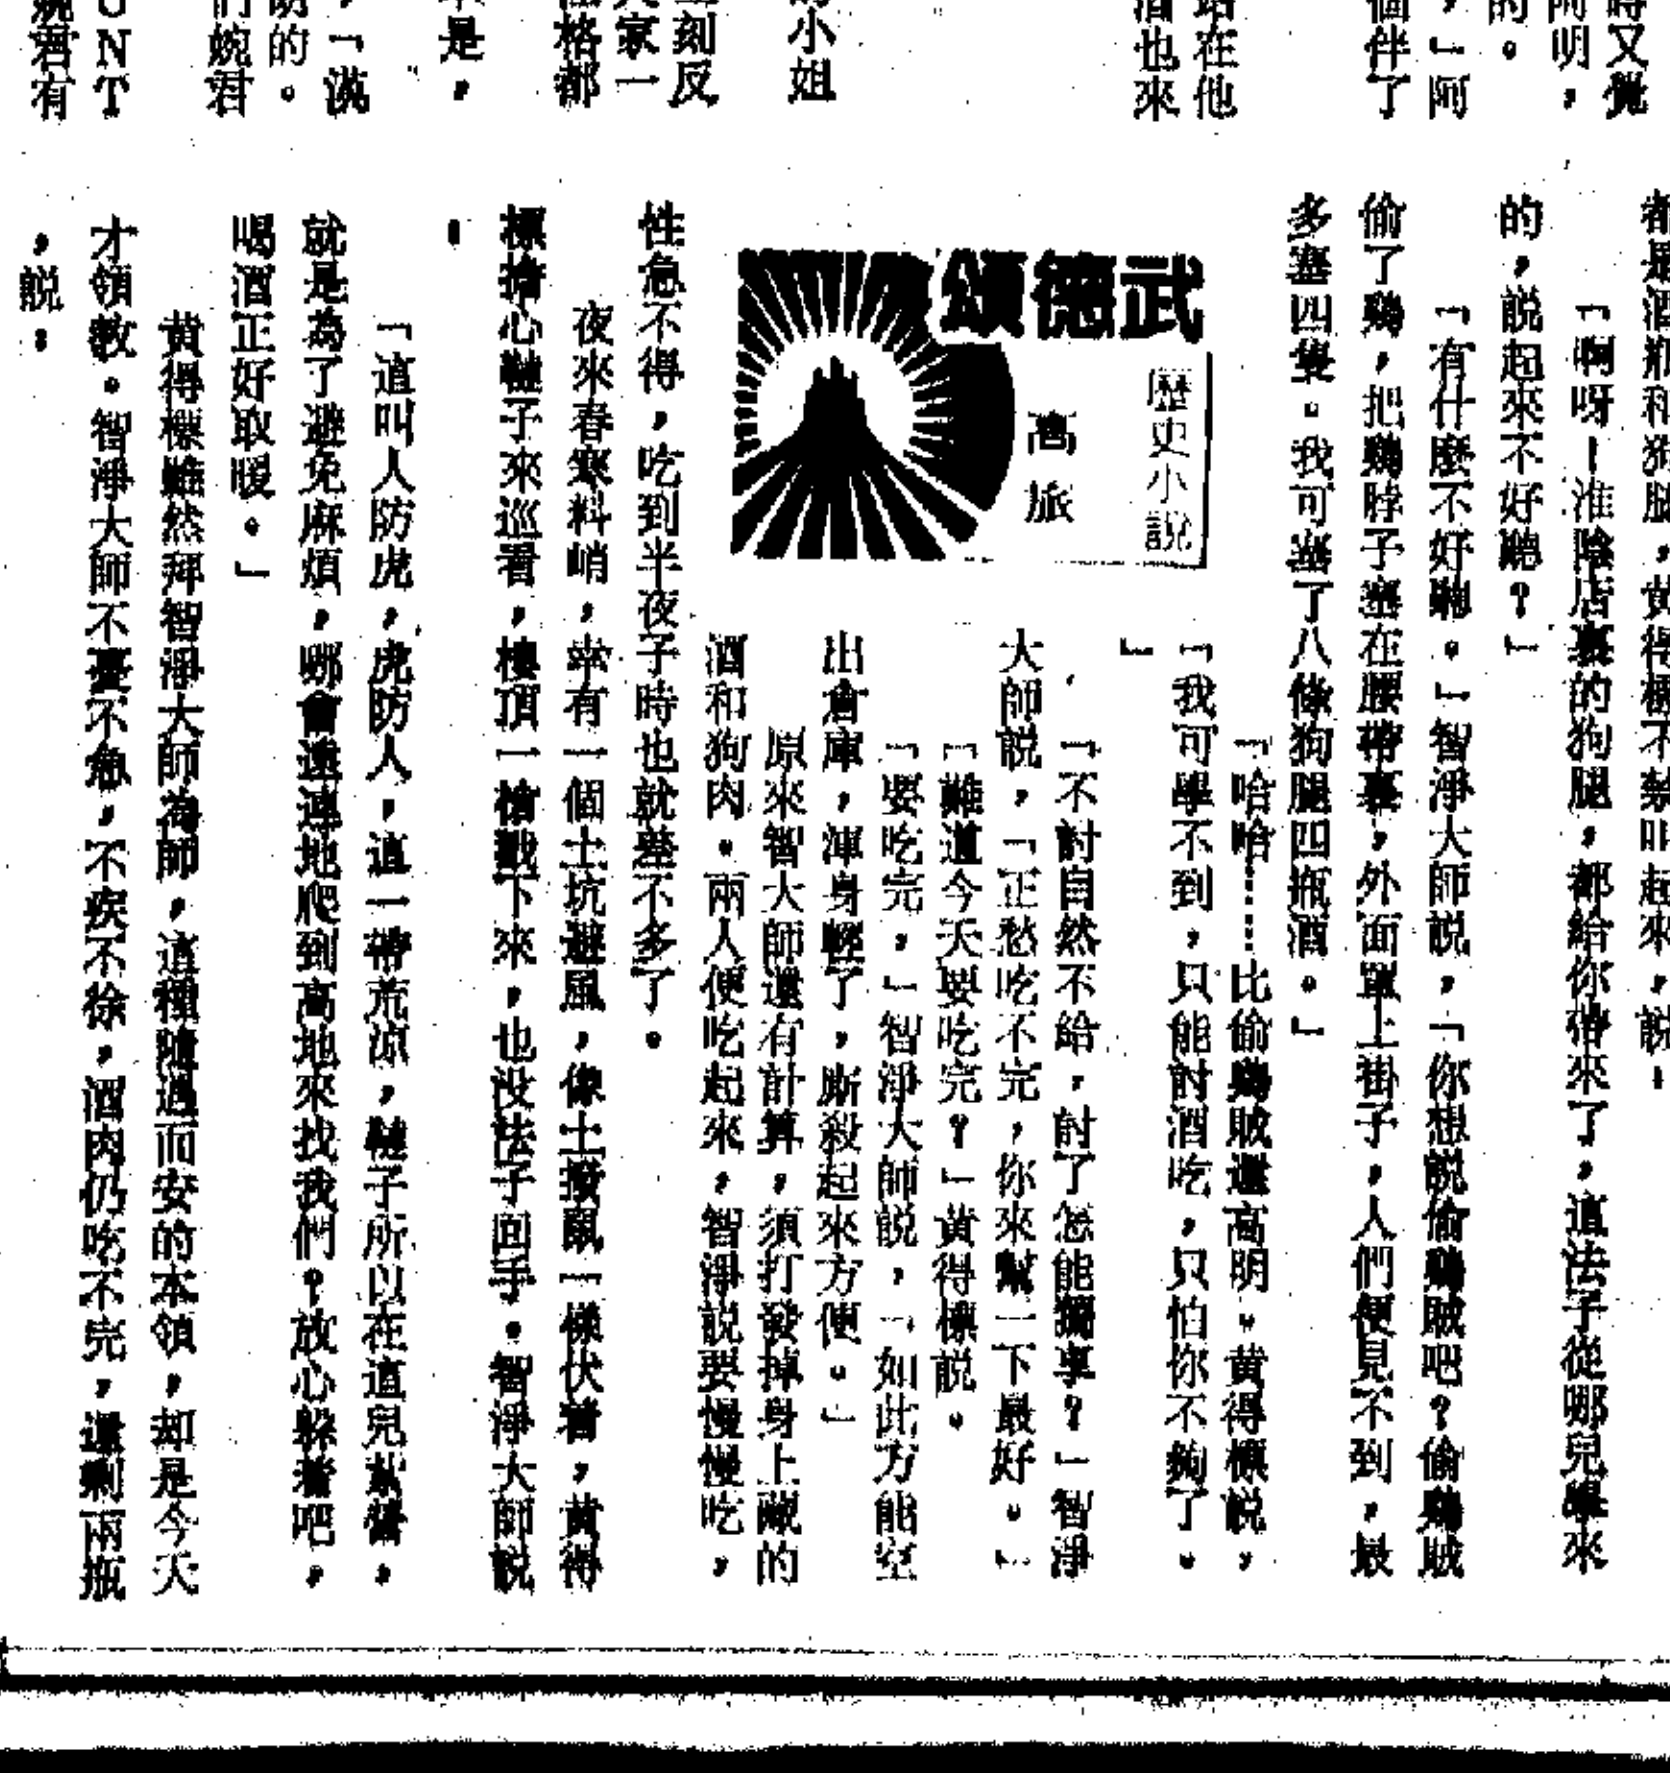 時又覺
阿明，
的。
，」阿
個伴了
站在他
酒也來
小姐
刻反
家一
格都
是，
，「漠
的。
們婉君
UNT
婉君有
都是酒瓶和狗腿，黃得標不禁叫起來，說：
「啊呀！淮陰店裏的狗腿，都給你帶來了，這法子從哪兒學來
的，說起來不好聽？」
「有什麼不好聽。」智淨大師說，「你想說偷鷄賊吧？偷鷄賊
偷了鷄，把鷄脖子塞在腰帶裏，外面罩上褂子，人們便見不到，最
多塞四隻。我可塞了八條狗腿四瓶酒。」
武德頌
歷史小說
高旅
「哈哈……比偷鷄賊還高明。黃得標說，
「我可學不到，只能討酒吃，只怕你不夠了。
」
「不討自然不給，討了怎能獨享？」智淨
大師說，「正愁吃不完，你來幫一下最好。」
「難道今天要吃完？」黃得標說。
「要吃完，」智淨大師說，「如此方能空
出倉庫，渾身輕了，廝殺起來方便。」
原來智大師還有計算，須打發掉身上藏的
酒和狗肉。兩人便吃起來，智淨說要慢慢吃，
性急不得，吃到半夜子時也就差不多了。
夜來春寒料峭，幸有一個土坑避風，像土撥鼠一樣伏着，黃得
標擔心韃子來巡看，樓頂一槍戳下來，也没法子回手。智淨大師說
：
「這叫人防虎，虎防人，這一帶荒涼，韃子所以在這兒紮營，
就是為了避免麻煩，哪會遠遠地爬到高地來找我們？放心躲着吧，
喝酒正好取暖。」
黃得標雖然拜智淨大師為師，這種隨遇而安的本領，却是今天
才領教。智淨大師不憂不急，不疾不徐，酒肉仍吃不完，還剩兩瓶
，說：